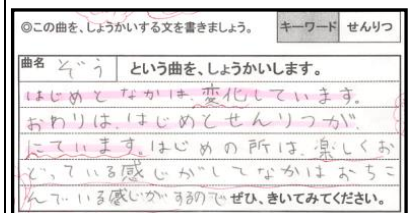 ◎この曲を、しょうかいする文を書きましょう。 キーワード せんりつ
曲名 ぞう という曲を、しょうかいします。
はじめとなかは、変化しています。
おわりは、はじめとせんりつが、
にています。はじめの所は、楽しくお
どっている感じがしてなかはおちこ
んでいる感じがするのでぜひ、きいてみてください。